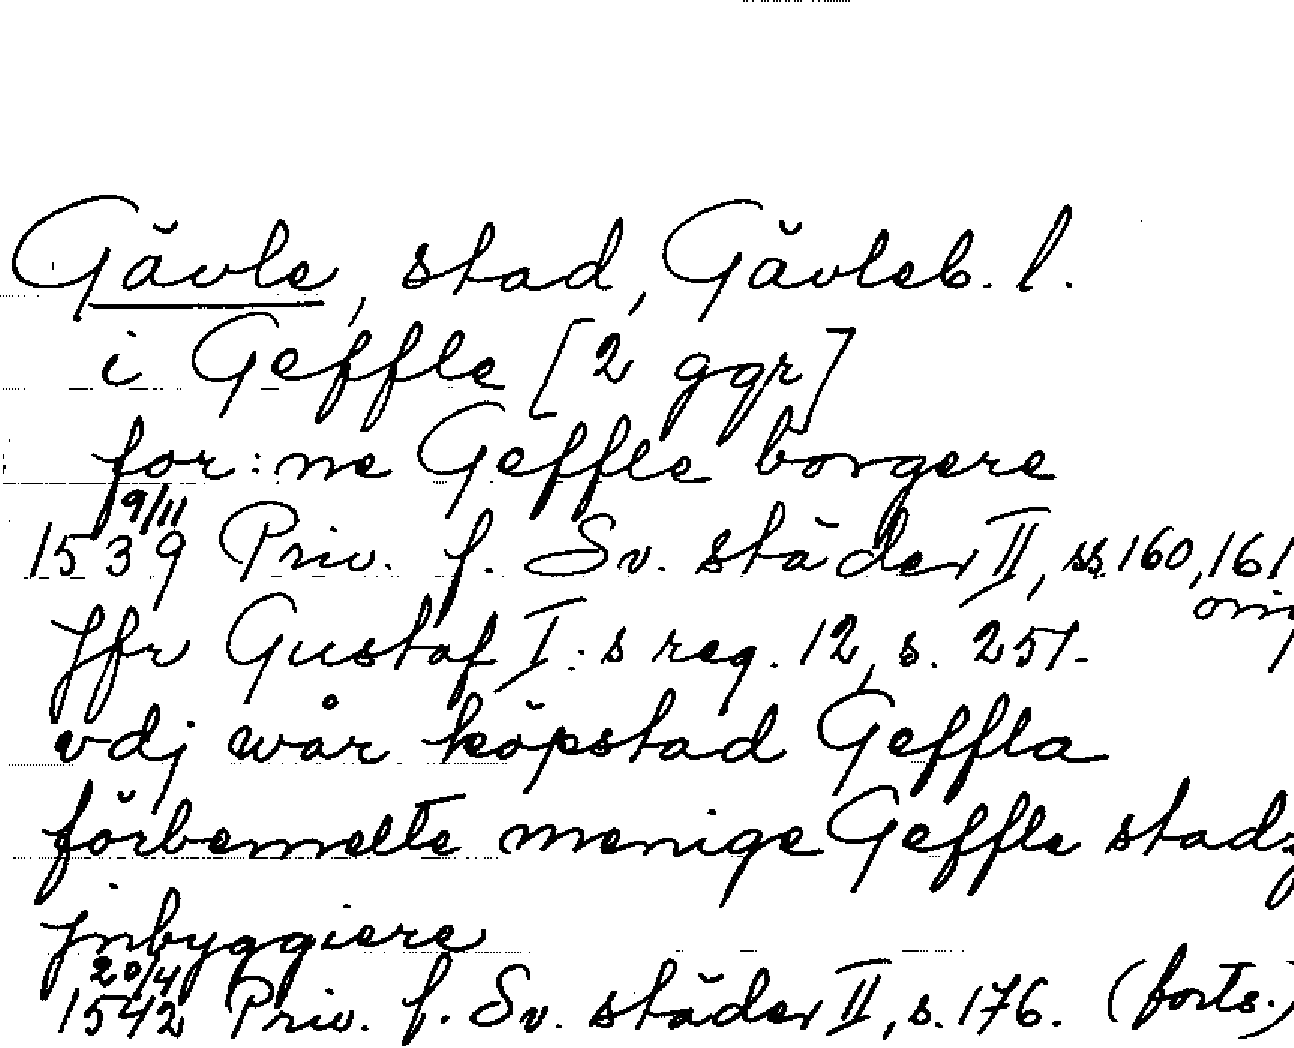 Gävle, stad, Gävleb. l.
i Geffle [2 ggr]
for:ne Geffle borgere
9/11
1539 Priv. f. Sv. städer II, ss. 160, 161
orig
Jfr Gustaf I:s reg. 12, s. 251.
vdj wår köpstad Geffla
förbemelte menige Geffle stadz
jnbyggiere
20/4
1542 Priv. f. Sv. städer II, s. 176. (forts.)